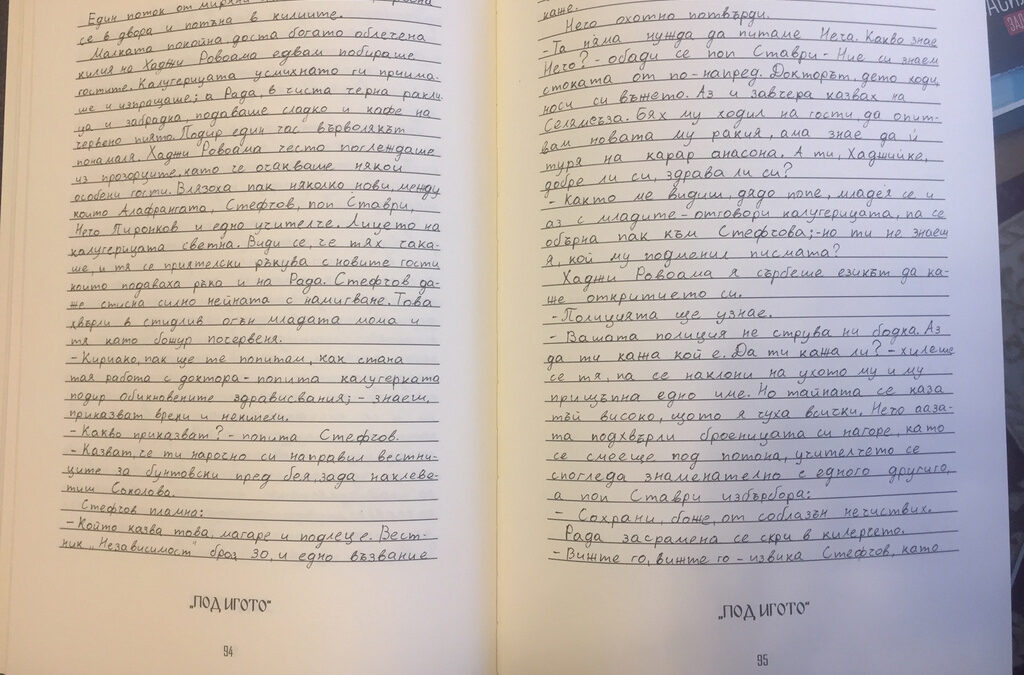 Един поток от миряни
се в двора и потъна в килиите.
Малката покойна доста богато облечена
килия на Хаджи Ровоама едвам побираше
гостите. Калугерицата усмихнато ги приима-
ше и изпращаше; а Рада, в чиста черна ракли-
ца и забрадка, подаваше сладко и кафе на
червено пиято. Подир един час върволякът
понамаля. Хаджи Ровоама често поглеждаше
из прозорците, като че очакваше някои
особени гости. Влязоха пак няколко нови, между
които Алафрангата, Стефчов, поп Ставри,
Нечо Пиронков и едно учителче. Лицето на
калугерицата светна. Види се, че тях чака-
ше, и тя се приятелски ръкува с новите гости
които подаваха ръка и на Рада. Стефчов да-
же стисна силно нейната с намигване. Това
хвърли в стидлив огън младата мома и
тя като божур почервеня.
- Кириако, пак ще те попитам, как стана
тая работа с доктора - попита калугерката
подир обикновените здрависвания; - знаеш,
приказват врели и некипели.
- Какво приказват? - попита Стефчов.
- Казват, че ти наросно си направил вестни-
ците за бунтовски пред бея, зада наклеве-
тиш Соколова.
Стефчов пламна:
- Който казва това, магаре и подлец е. Вест-
ник „Независимост" брой 30, и едно възвание
„ПОД ИГОТО"
94
каже.
Нечо охотно потвърди.
- Та няма нужда да питаме Неча. Какво знае
Нечо? - обади се поп Ставри - Ние си знаем
стоката от по-напред. Докторът, дето ходи,
носи си въжето. Аз и завчера казвах на
Селямсъза. Бях му ходил на гости да опит-
вам новата му ракия, ама знае да ѝ
туря на карар анасона. А ти, Хаджийке,
добре ли си, здрава ли си?
- Както ме видиш, дядо попе, младея се и
аз с младите - отговори калугерицата, па се
обърна пак към Стефчова; - но ти не знаеш
я, кой му подменил писмата?
Хаджи Ровоама я сърбеше езикът да ка-
же откритието си.
- Полицията ще узнае.
- Вашата полиция не струва ни бодка. Аз
да ти кажа кой е. Да ти кажа ли? - хилеше
се тя, па се наклони на ухото му и му
прищъпна едно име. Но тайната се каза
тъй високо, щото я чуха всички. Нечо ааза-
та подхвърли броеницата си нагоре, като
се смееще под потона, учителчето се
спогледа знаменателно с едного другиго,
а поп Ставри избърбора:
- Сохрани, боже, от соблазън нечистих.
Рада засрамена се скри в килерчето.
- Вижте го, вижте го - извика Стефчов, като
„ПОД ИГОТО"
95